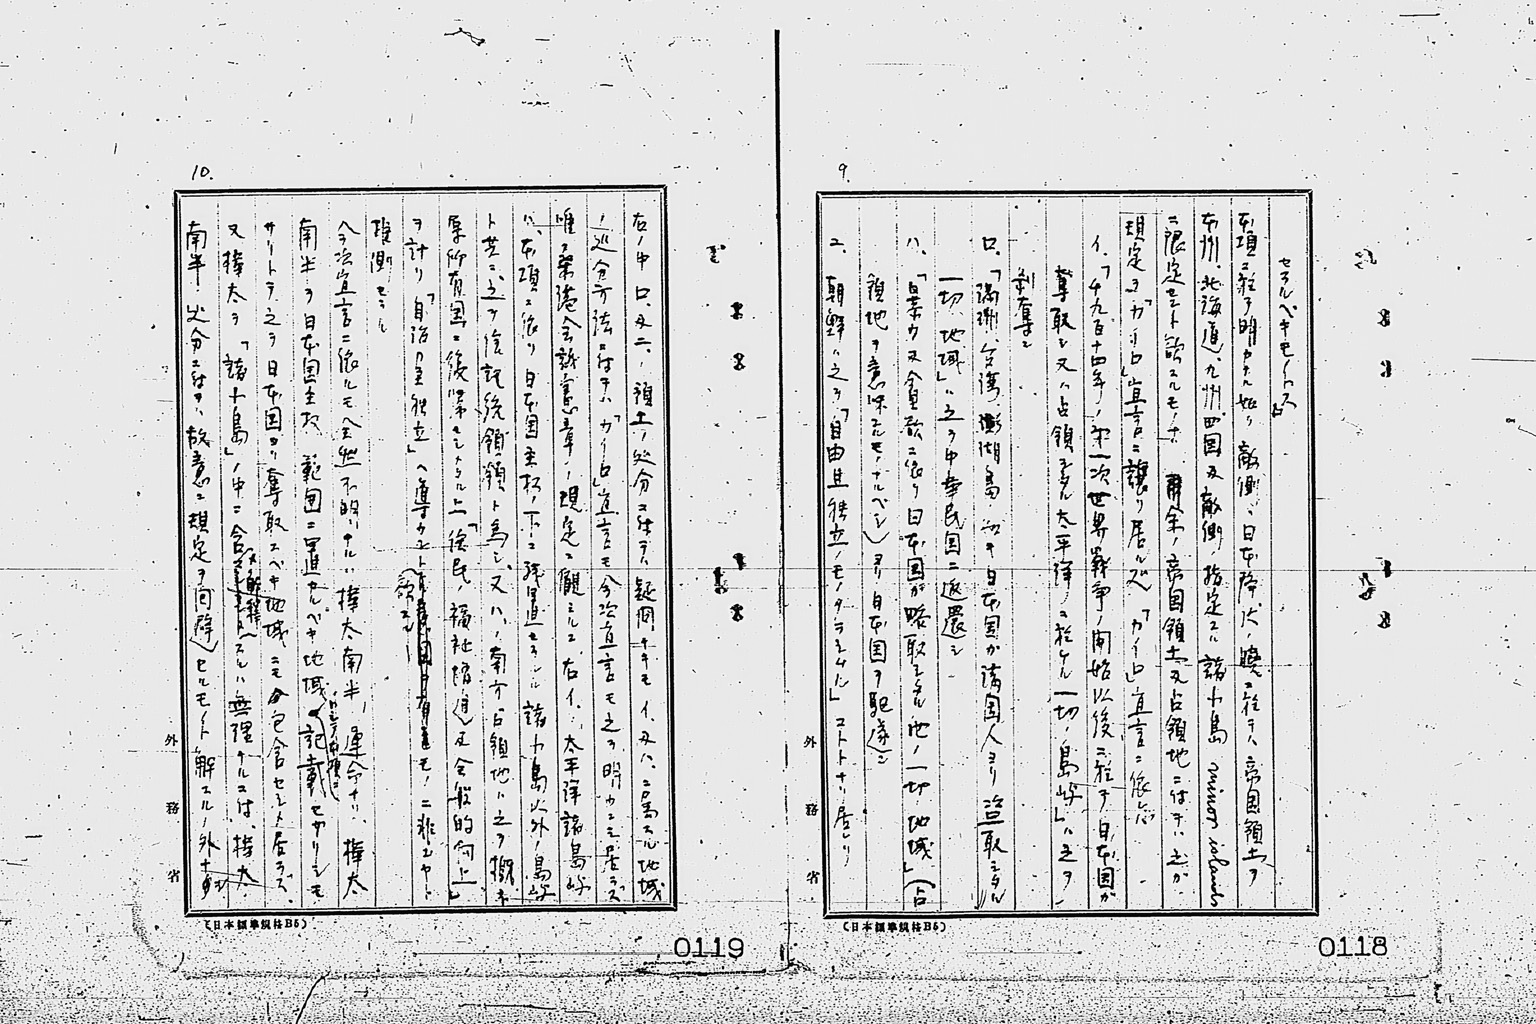 9.
セラルベキモノトス
本項ニ於テ明カナル如ク敵側ハ日本降伏ノ曉ニ於テハ帝国領土ヲ
本州、北海道、九州、四国及敵側ノ指定スル諸小島 minor islands
ニ限定セント欲スルモノナ 余ノ帝国領土又占領地ニ付テハ之カ
規定ヲ「カイロ」宣言ニ譲リ居ルズ「カイロ」宣言ニ依レバ
イ、「千九百十四年ノ第一次世界戦争ノ開始以後ニ於テ日本国ガ
奪取シ又ハ占領シタル太平洋ニ於ケル一切ノ島嶼」ハ之ヲ
剥奪シ
ロ、「満洲、台湾、澎湖島ノ如キ日本国ガ清国人ヨリ盗取シタル
一切ノ地域」ハ之ヲ中華民国ニ返還シ
ハ、「暴力及金慾ニ依リ日本国ガ略取シタル他ノ一切ノ地域」(占
領地ヲ意味スルモノナルベシ)ヨリ日本国ヲ駆逐シ
ニ、朝鮮ハ之ヲ「自由且独立ノモノタラシムル」コトトナリ居レリ
外務省
(日本標準規格B5)
0118
10.
右ノ中ロ、及ニ、ノ領土ノ処分ニ付テハ疑問ナキモイ、及ハ、ニ属スル地域
ノ処分方法ニ付テハ「カイロ」宣言モ今次宣言モ之ヲ明カニシ居ラズ
唯 会議憲章ノ規定ニ顧ミルニ右イ、ノ太平洋諸島嶼
ハ本項ニ依リ日本国主权ノ下ニ残置セラルル諸小島以外ノ島嶼
ト共ニ之ヲ信託統領ト為シ、又ハ、ノ南方占領地ハ之ヲ概ネ
原所有国ニ復帰セシメタル上「住民ノ福祉増進」及全般的向上」
ヲ計リ「自治乃至独立」ヘ導カント 欲スルモノニ非ズヤト
推測セラル
今次宣言ニ依ルモ全然不明ナルハ樺太南半ノ運命ナリ、樺太
南半ヲ日本国主权ノ範囲ニ置カルベキ地域 記載セザリシモ
サリトテ之ヲ日本国ヨリ奪取スベキ地域ニモ包含セシメ居ラズ、
又樺太ヲ「諸小島」ノ中ニ含ム 解釈スルハ無理ナルヘク、樺太
南半ノ処分ニ付テハ故意ニ規定ヲ回避セルモノト解スルノ外ナカルベシ
外務省
(日本標準規格B5)
0119